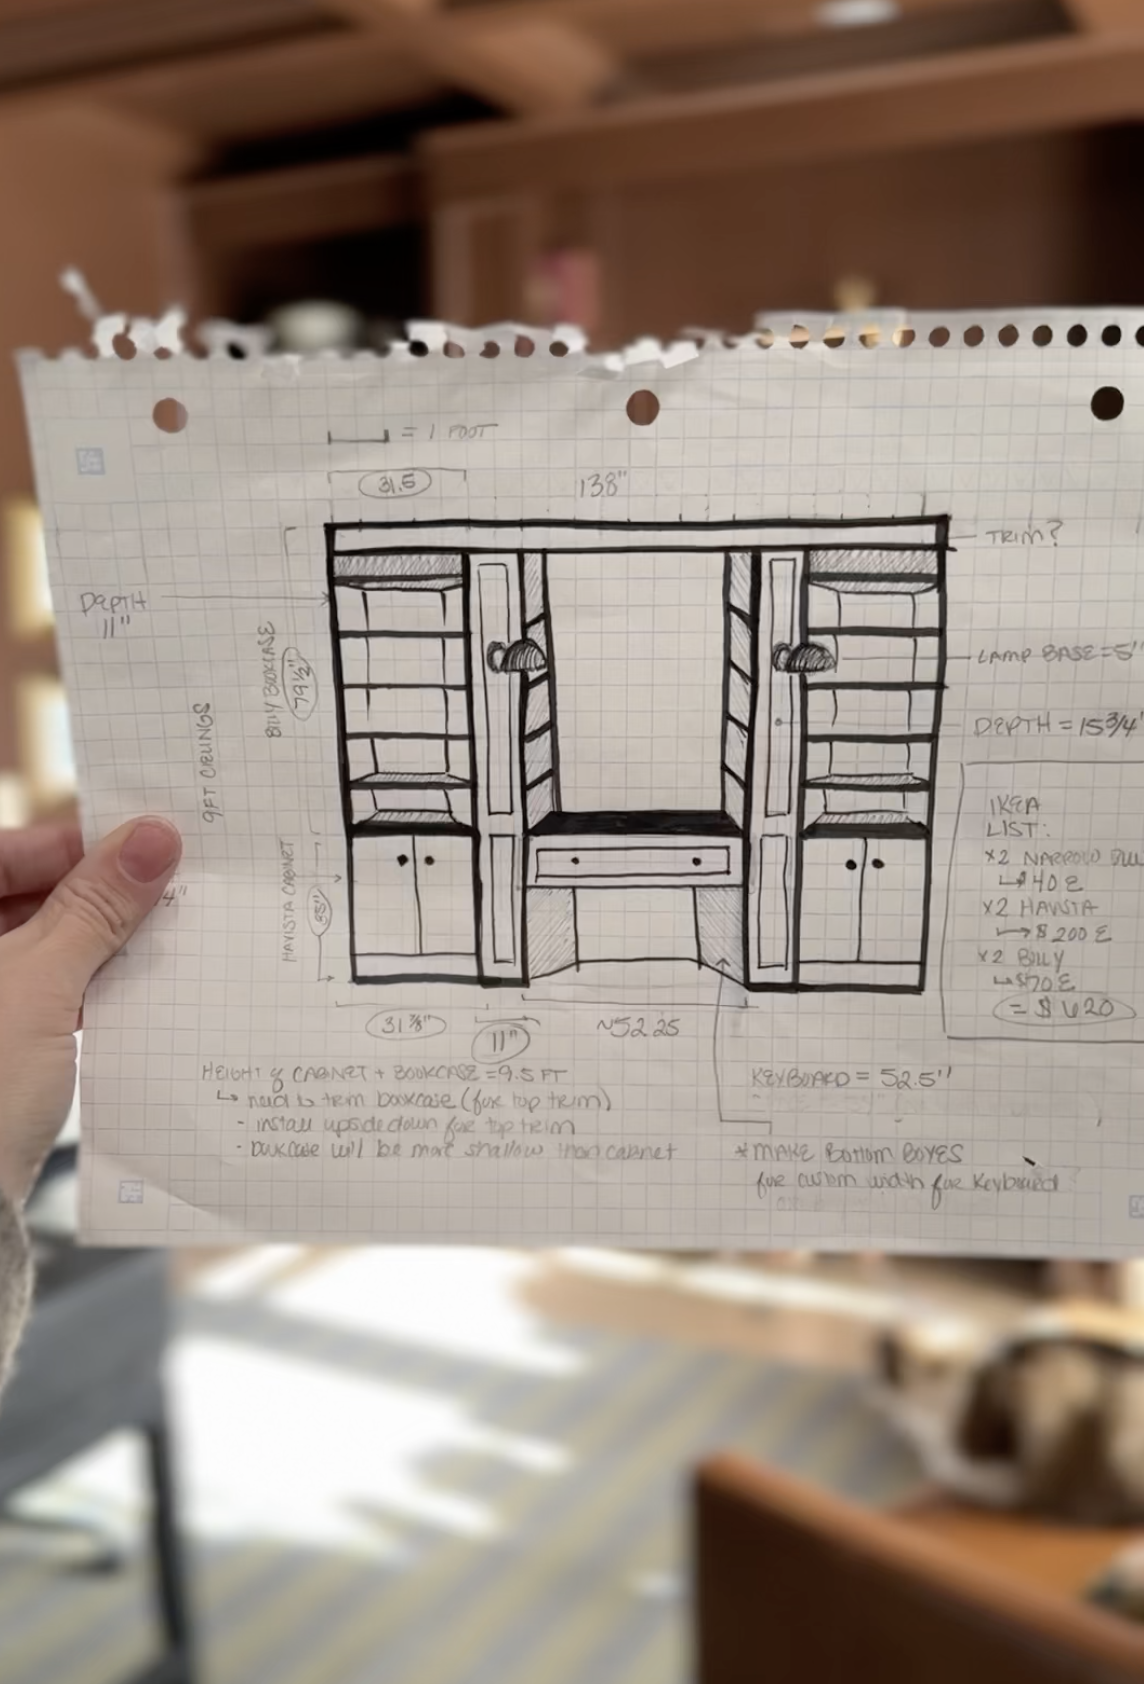 = 1 FOOT
31.5
138"
TRIM?
DEPTH
11"
LAMP BASE = 5"
BILLY BOOKCASE
79½"
9FT CEILINGS
DEPTH = 15 3/4"
IKEA
LIST:
x2 NARROW
↳ $40 E
x2 HAVISTA
↳ $200 E
x2 BILLY
↳ $70 E
= $620
HAVISTA CABINET
35"
4"
31 7/8"
11"
~52.25
HEIGHT of CABINET + BOOKCASE = 9.5 FT
↳ need to trim bookcase (for top trim)
- install upside down for top trim
- bookcase will be more shallow than cabinet
KEYBOARD = 52.5"
* MAKE BOTTOM BOXES
for custom width for keyboard